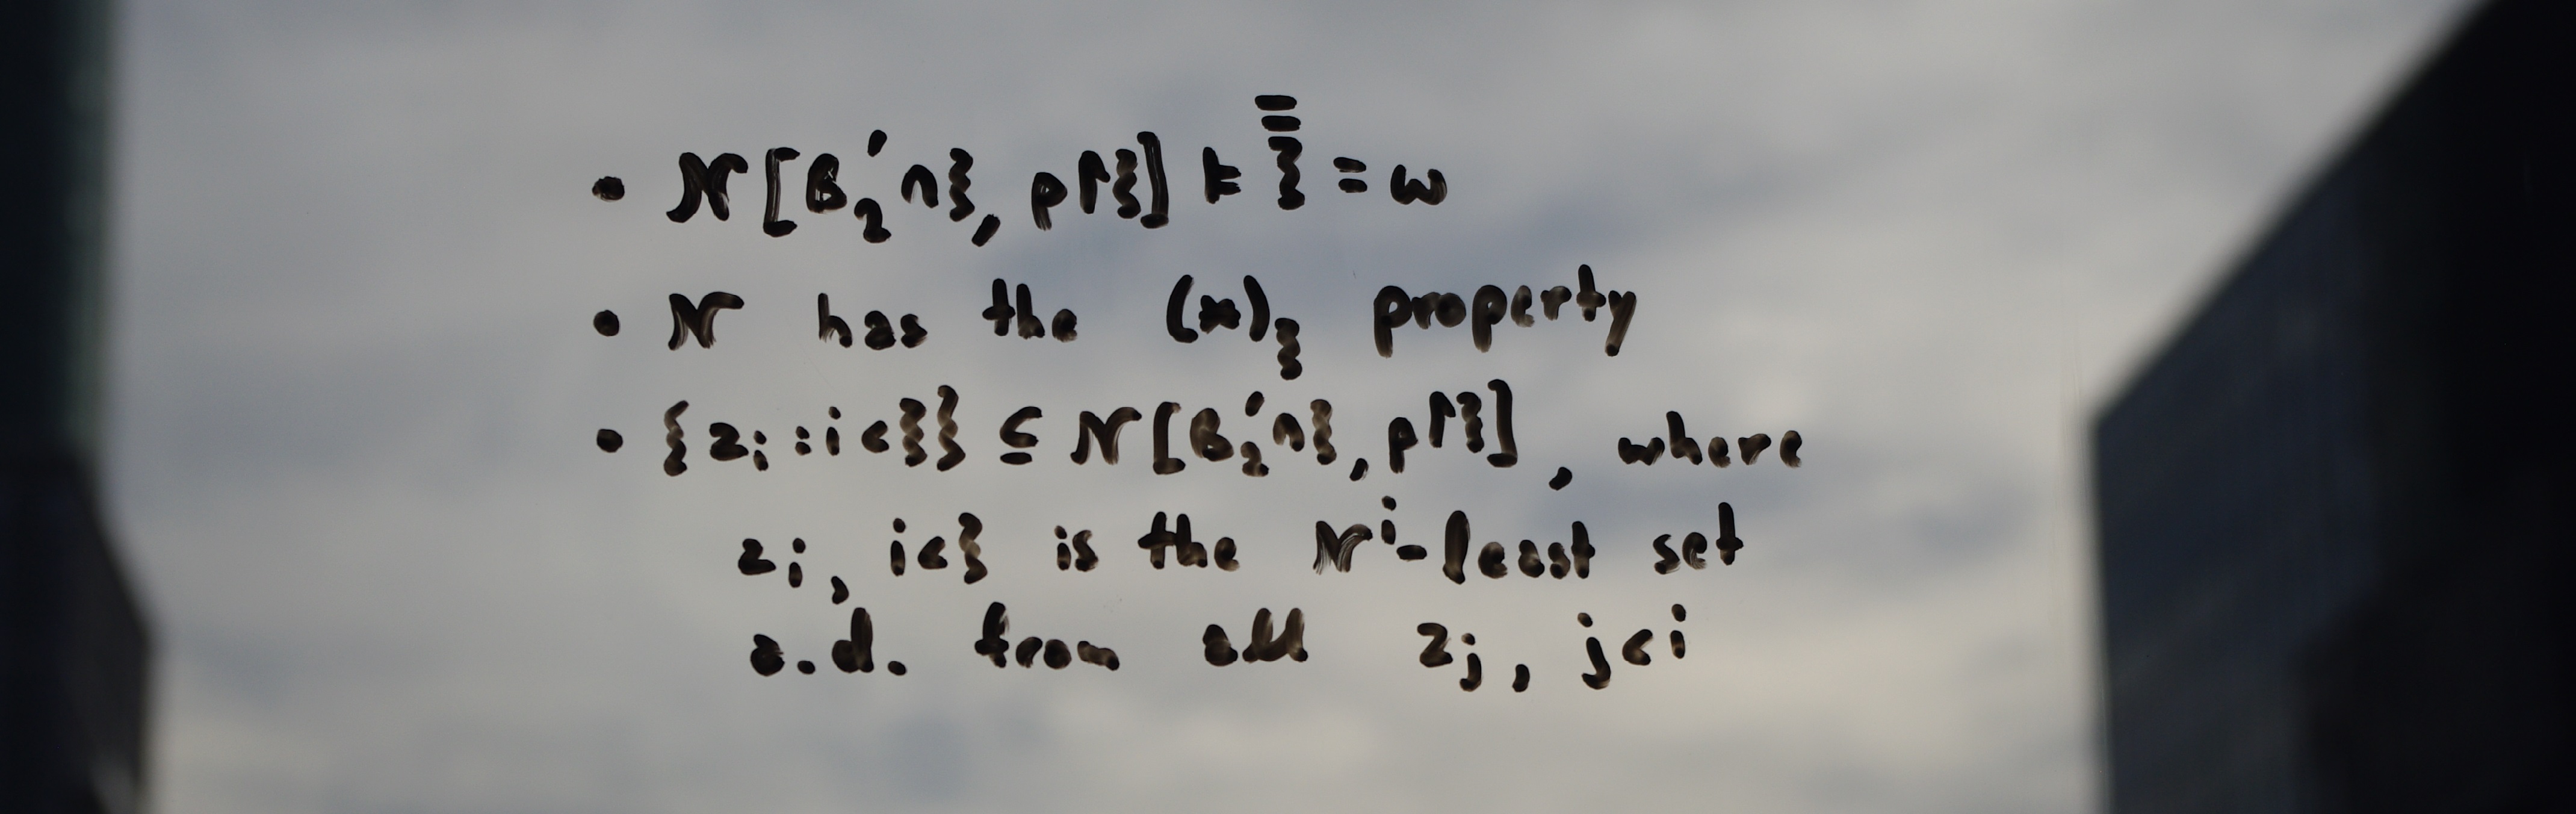 • N[B₂′∩ξ, p↾ξ] ⊨ ξ̿ = ω
• N has the (*)_ξ property
• {z_i : i<ξ} ⊆ N[B₂′∩ξ, p↾ξ], where
z_i, i<ξ is the N^i-least set
a.d. from all z_j, j<i